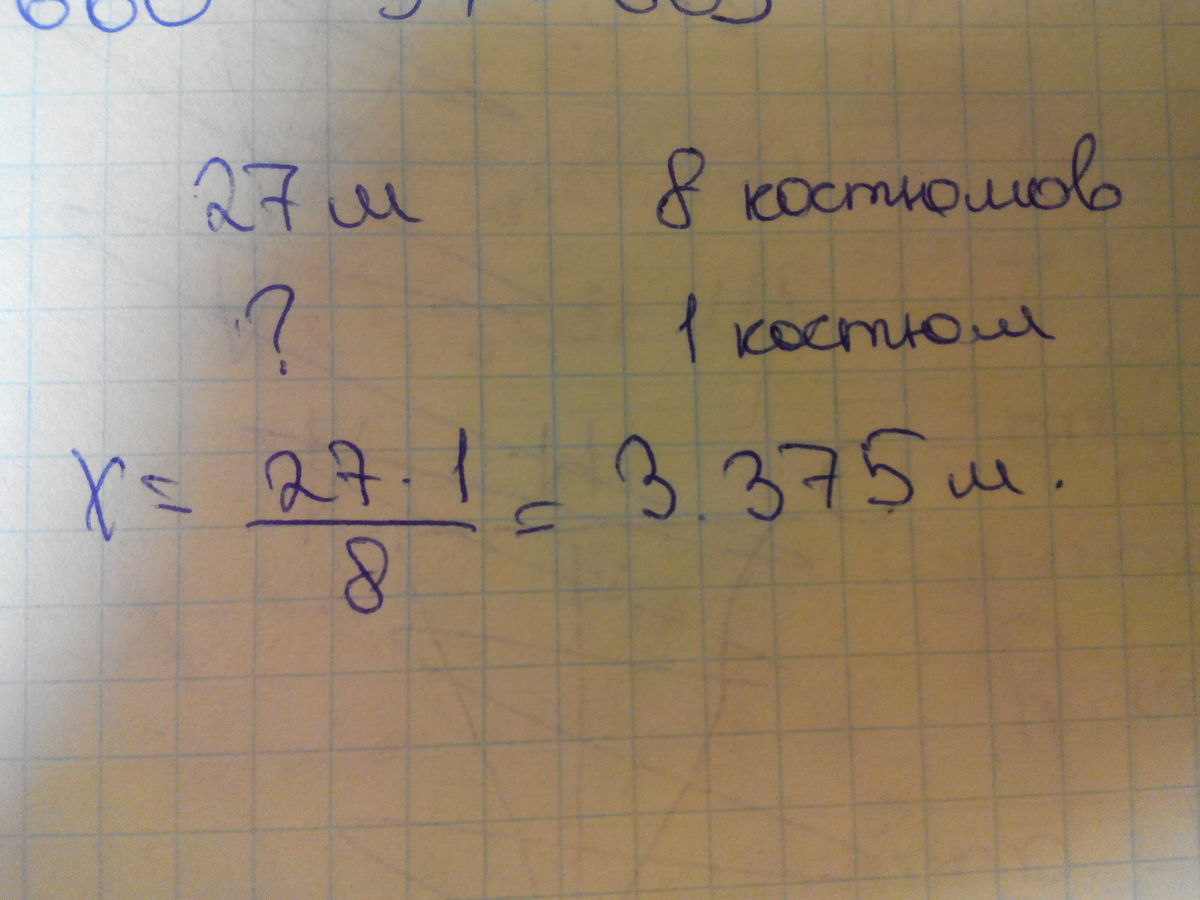 27 м 8 костюмов
? 1 костюм
x = 27 · 1 / 8 = 3.375 м.